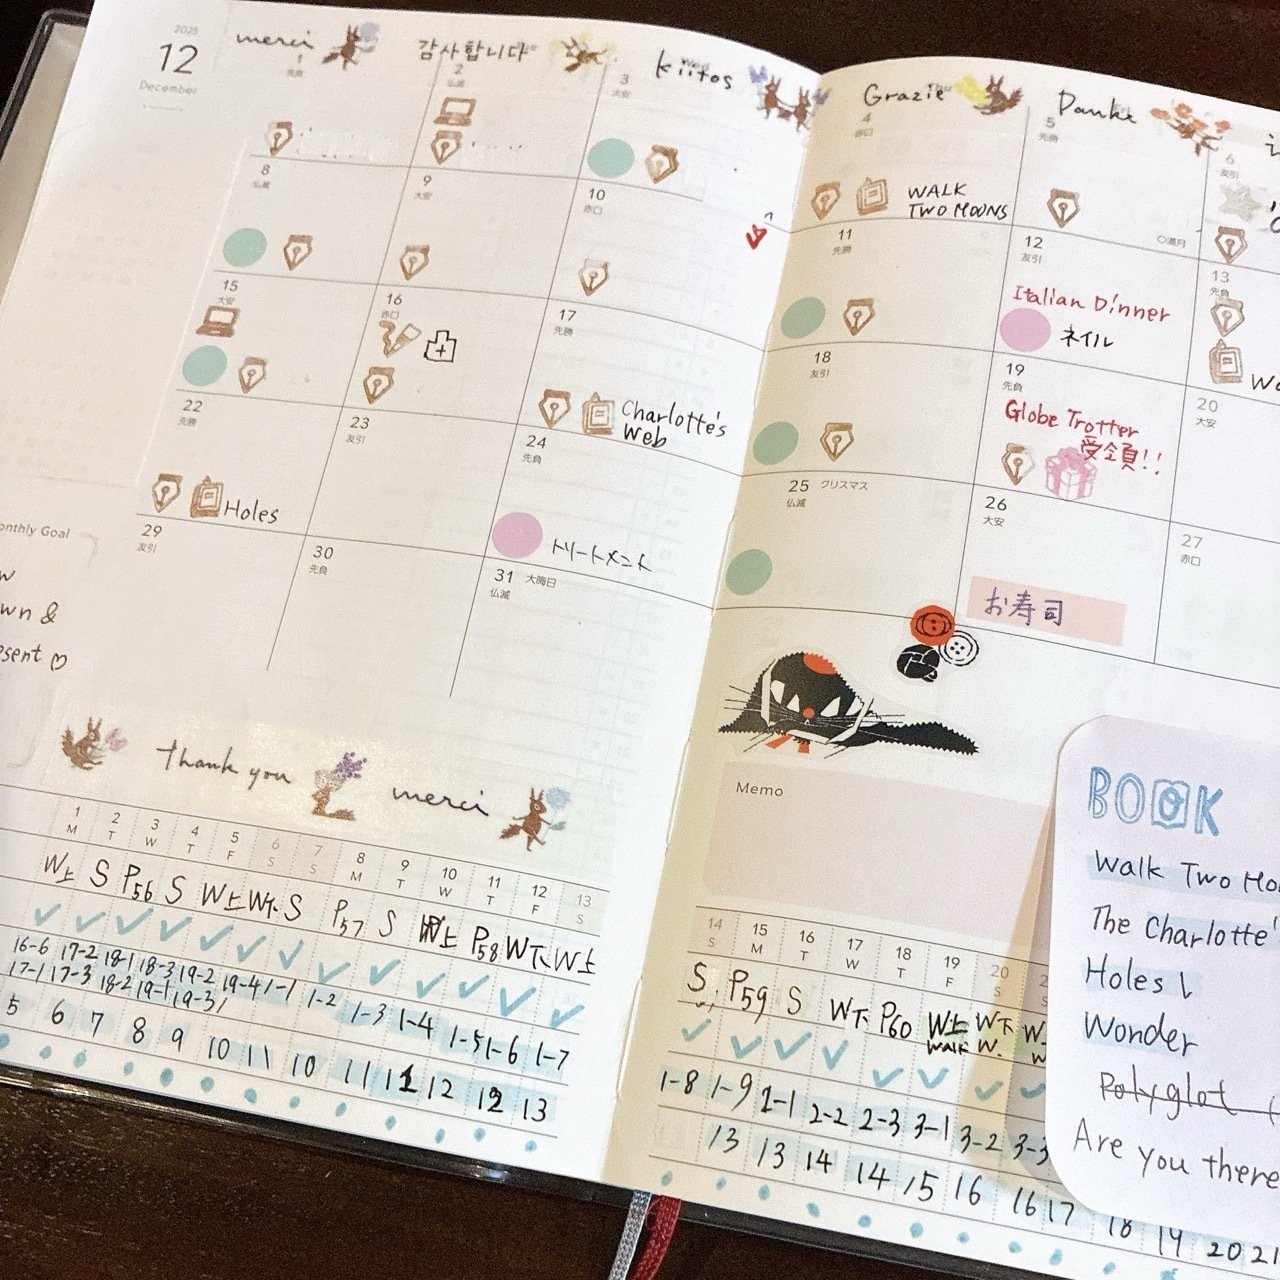 2025
12
December
merci
감사합니다
kiitos
Grazie
Danke
1
先負
2
仏滅
3
大安
4
赤口
WALK
TWO MOONS
5
先勝
○満月
6
友引
8
仏滅
9
大安
10
赤口
11
先勝
12
友引
Italian Dinner
ネイル
13
先負
15
大安
16
赤口
17
先勝
Charlotte's
Web
18
友引
19
先負
Globe Trotter
受領!!
20
大安
22
先勝
Holes
23
友引
24
先負
トリートメント
25 クリスマス
仏滅
26
大安
お寿司
27
赤口
29
友引
30
先負
31 大晦日
仏滅
onthly Goal
w
wn &
esent ♡
thank you
merci
Memo
BOOK
Walk Two Mo
The Charlotte'
Holes
Wonder
Polyglot (
Are you there
1 2 3 4 5 6 7 8 9 10 11 12 13
M T W T F S S M T W T F S
W上 S P56 S W上 W下 S P57 S W上 P58 W下 W上
16-6 17-2 18-1 18-3 19-2 19-4 1-1 1-2 1-3 1-4 1-5 1-6 1-7
17-1 17-3 18-2 19-1 19-3
5 6 7 8 9 10 11 10 11 12 12 13
14 15 16 17 18 19 20
S M T W T F S
S P59 S W下 P60 W上 W下 W
WALK W.
1-8 1-9 2-1 2-2 2-3 3-1 3-2 3-3
13 13 14 14 15 16 16 17 18 19 20 21